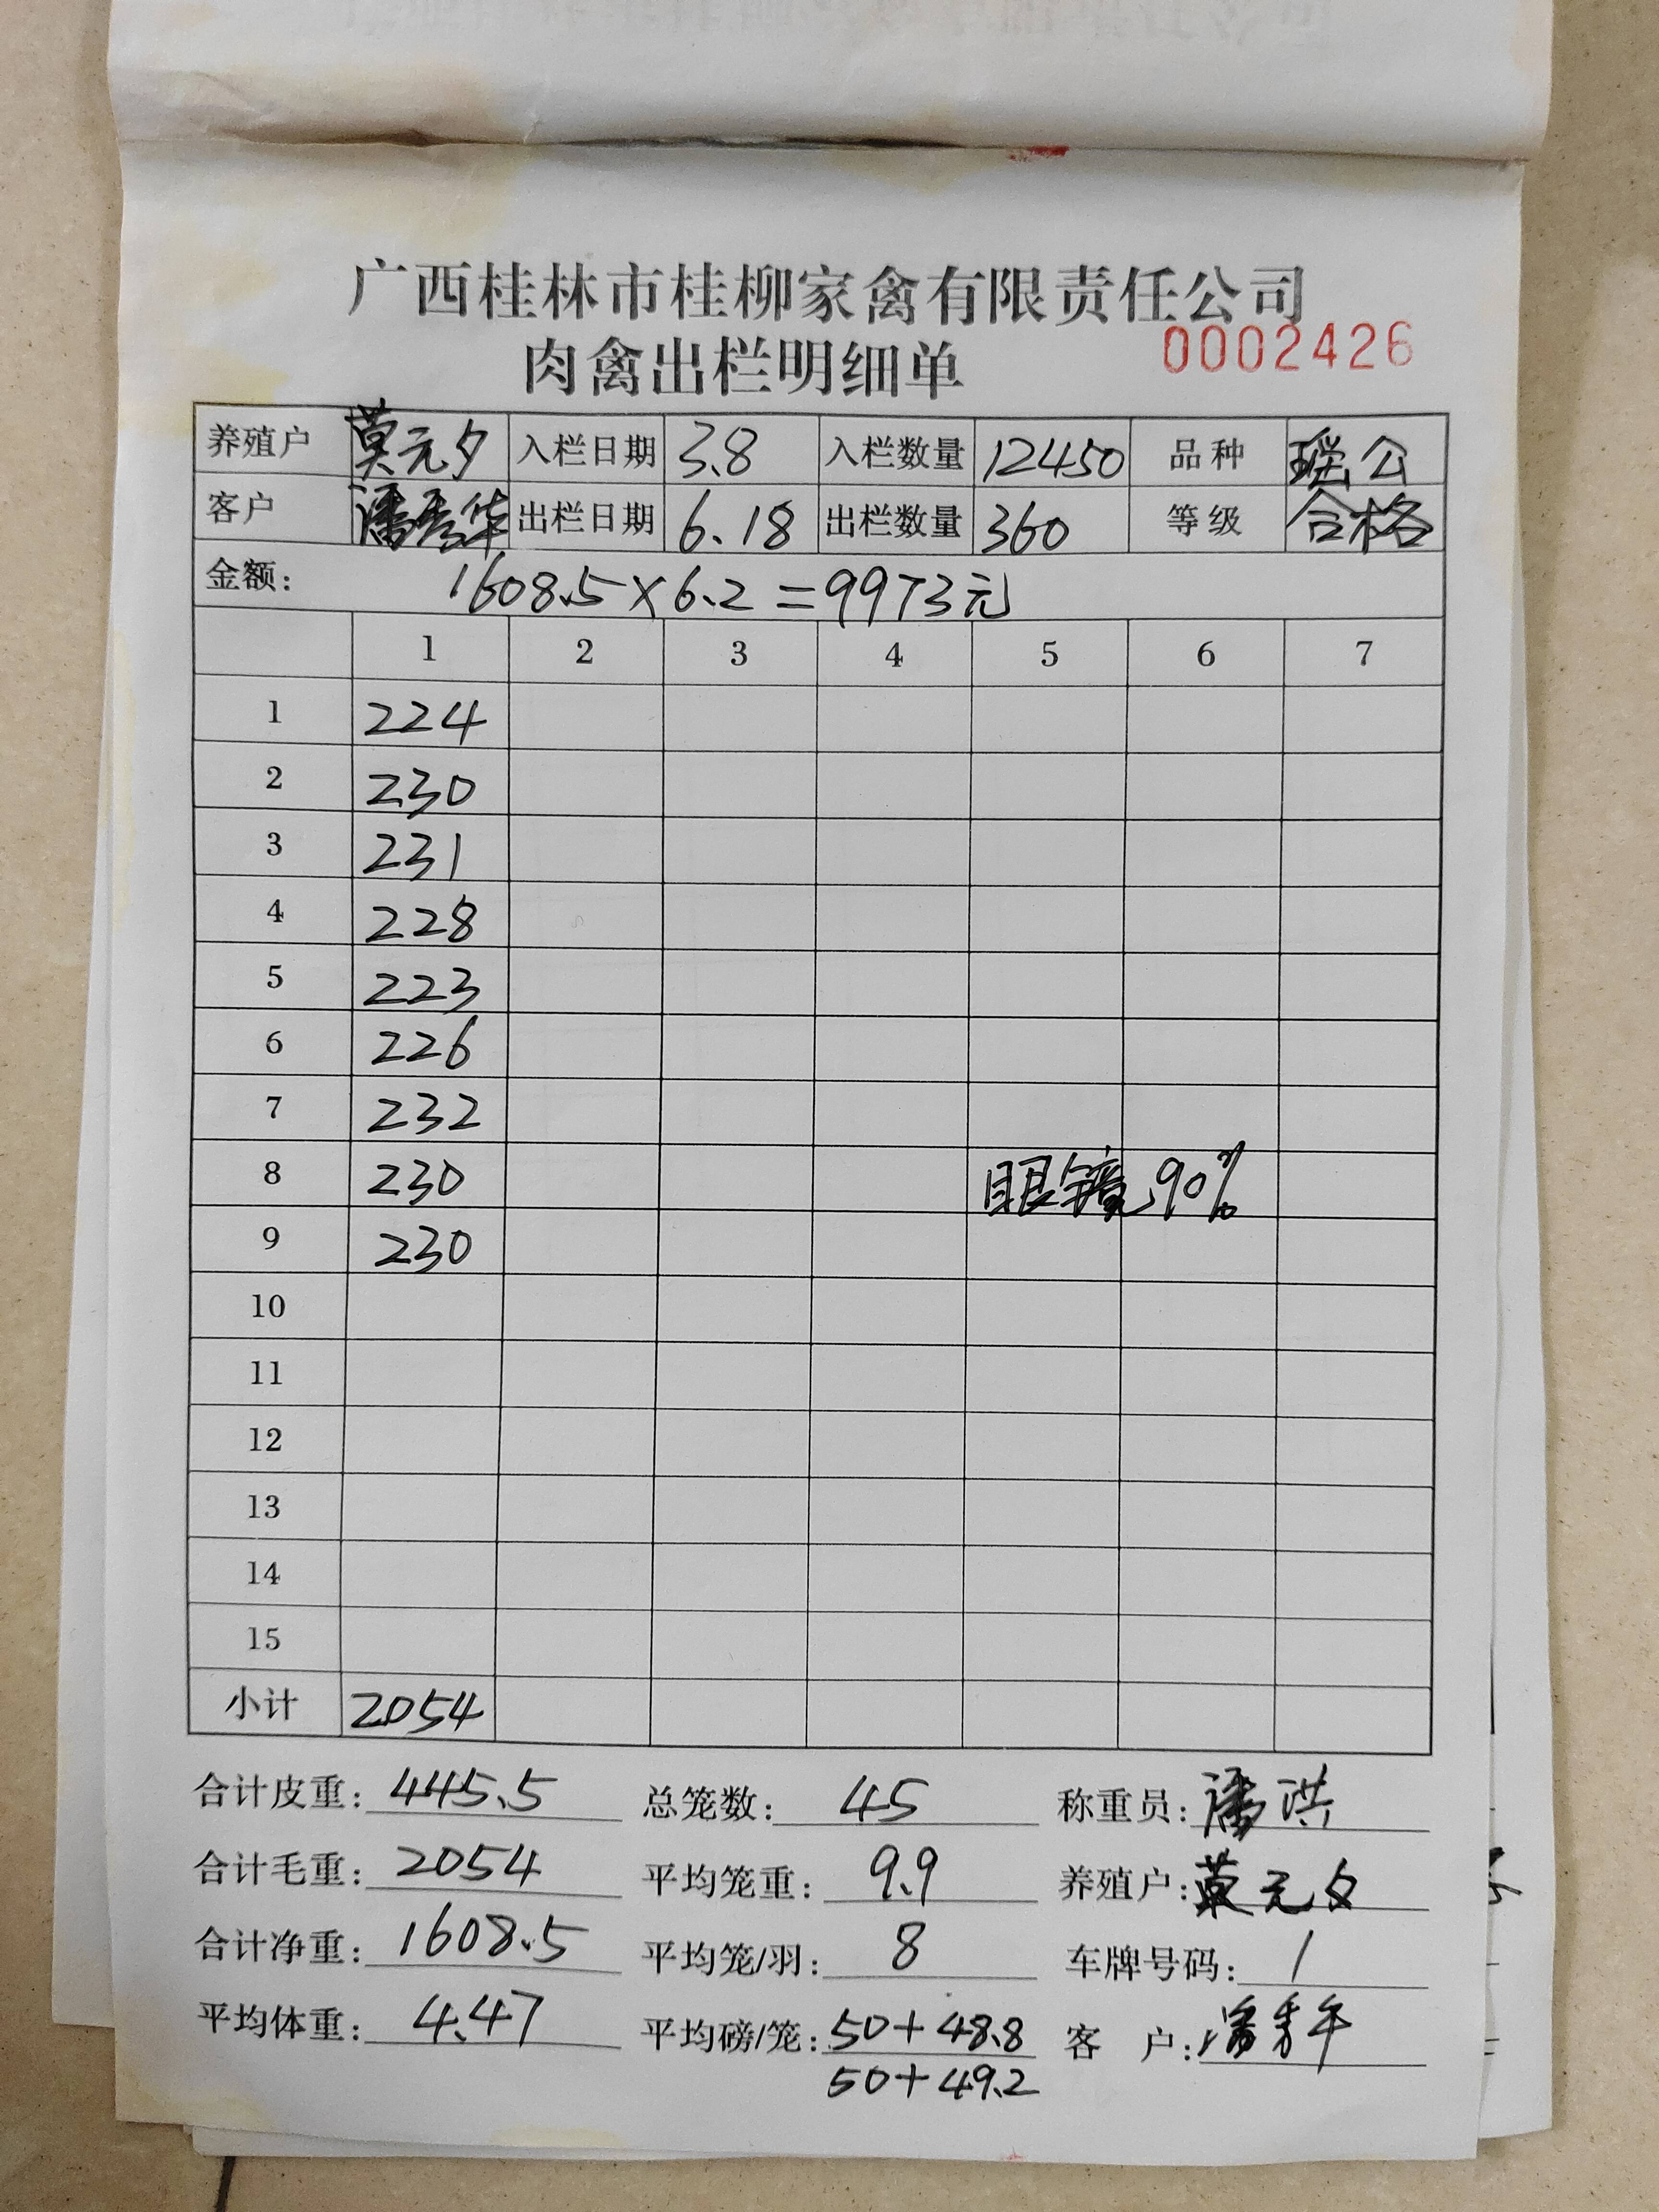 广西桂林市桂柳家禽有限责任公司
肉禽出栏明细单 0002426
养殖户 莫元夕 入栏日期 3.8 入栏数量 12450 品种 瑶公
客户 潘秀华 出栏日期 6.18 出栏数量 360 等级 合格
金额: 1608.5×6.2=9973元
1 2 3 4 5 6 7
1 224
2 230
3 231
4 228
5 223
6 226
7 232
8 230 眼镜90%
9 230
10
11
12
13
14
15
小计 2054
合计皮重: 445.5 总笼数: 45 称重员: 潘洪
合计毛重: 2054 平均笼重: 9.9 养殖户: 莫元夕
合计净重: 1608.5 平均笼/羽: 8 车牌号码: 1
平均体重: 4.47 平均磅/笼: 50+48.8 客 户:
50+49.2